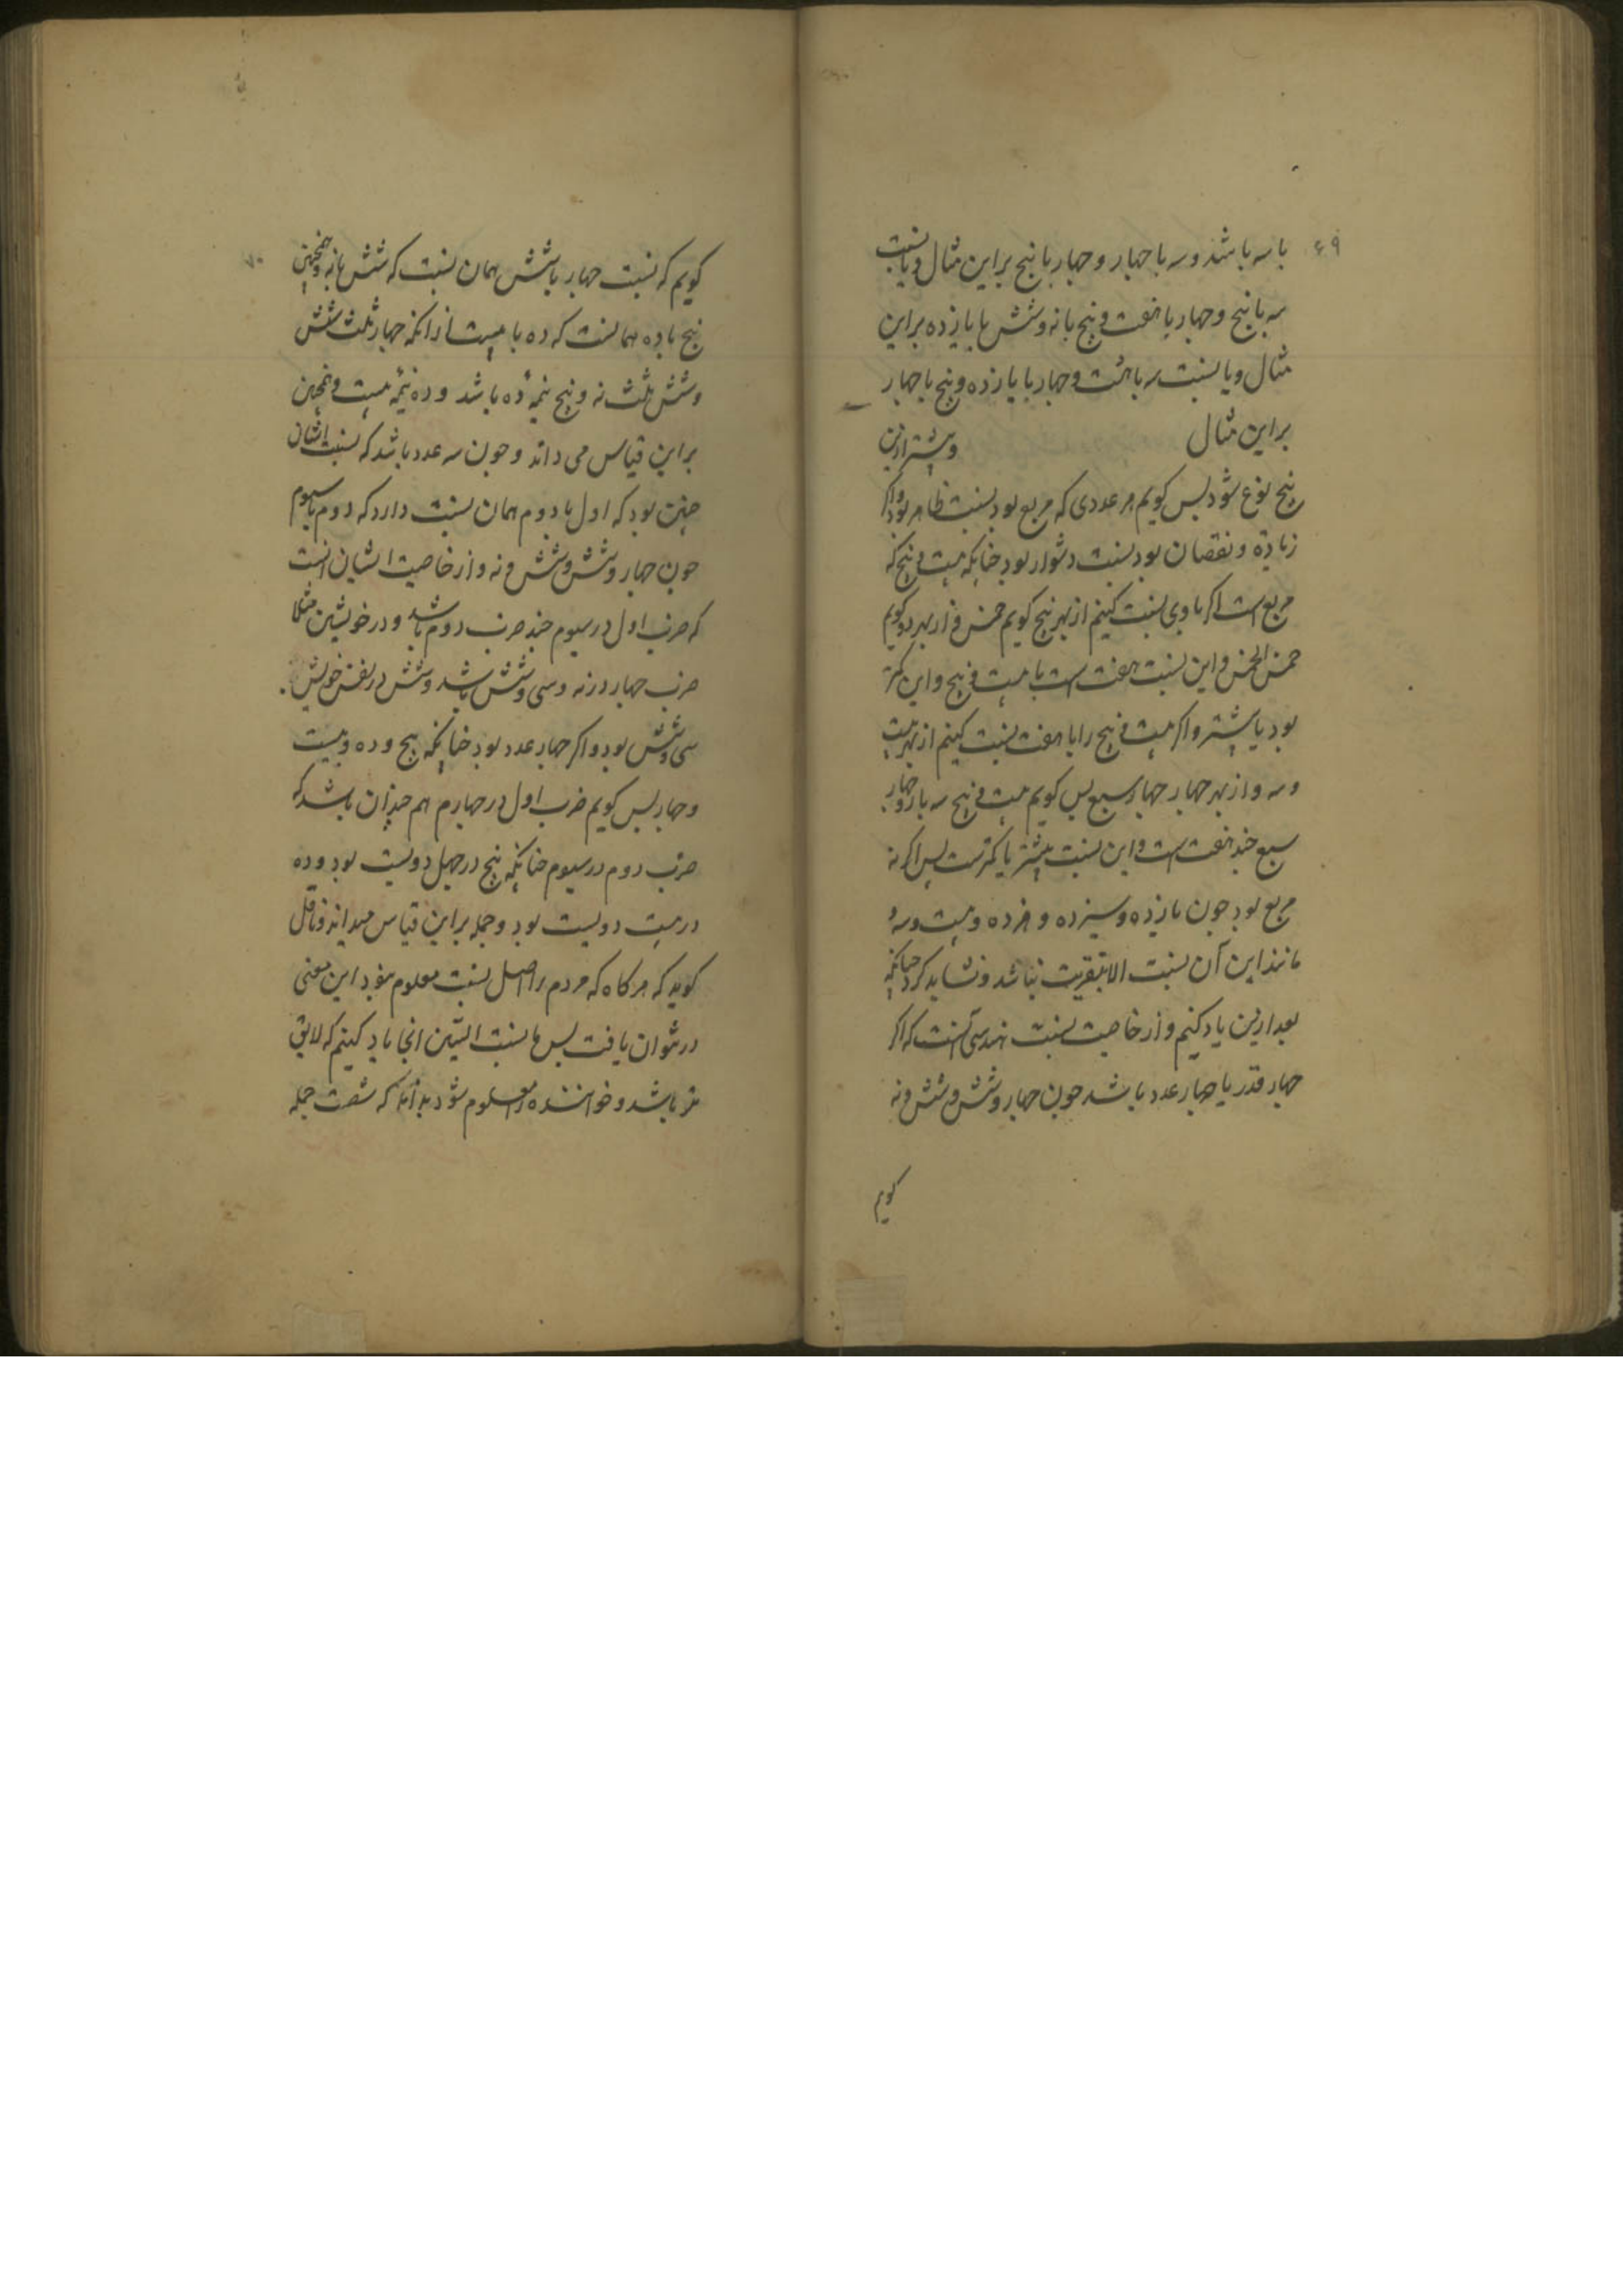 ۶۹
با سه باشد و سه با چهار و چهار با پنج براین مثال و یا نسبت
سه با پنج و چهار با هفت و پنج با نه و شش با یازده براین
مثال و یا نسبت سه با هشت و چهار با یازده و پنج با چهار
براین مثال وبیشتر ازین
پنج نوع شود پس کویم هر عددی که مربع بود نسبت ظاهر بود واکر
زیاده و نقصان بود نسبت دشوار بود چنانکه بیست و پنج که
مربع است اکر با وی نسبت کنیم از بهر پنج کویم خمس و از بهر دو کویم
خمس الخمس و این نسبت هفت است با بیست و پنج و این کمتر
بود یا بیشتر واکر بیست و پنج را با هفت نسبت کنیم از بهر بیست
و سه و از بهر چهار چهار سبع پس کویم بیست و پنج سه بار و چهار
سبع چند هفت است و این نسبت بیشتر یا کمترست پس اکر نه
مربع بود چون یازده و سیزده و هژده و بیست و سه و
مانند این آن نسبت الا بتقریب نباشد و نشاید کرد چنانکه
بعد ازین یاد کنیم و از خاصیت نسبت هندسی آنست که اکر
چهار قدر یا چهار عدد باشد چون چهار و شش و شش و نه
کویم
۷۰
کویم که نسبت چهار با شش همان نسبت که شش با نه و همچنین
پنج با ده همانست که ده با بیست از انکه چهار ثلث شش
و شش ثلث نه و پنج نیمهٔ ده باشد و ده نیمهٔ بیست و همچنین
براین قیاس می داند و چون سه عدد باشد که نسبت ایشان
چنین بود که اول با دوم همان نسبت دارد که دوم با سیوم
چون چهار و شش و شش و نه و از خاصیت ایشان انست
که ضرب اول در سیوم چند ضرب دوم باشد و در خویشین مثلا
ضرب چهار در نه و سی و شش باشد و شش در نفس خویش
سی و شش بود و اکر چهار عدد بود چنانکه پنج و ده و بیست
و چهار پس کویم ضرب اول در چهارم هم چندان باشد که
ضرب دوم در سیوم چنانکه پنج در چهل دویست بود و ده
در بیست دویست بود و جمله براین قیاس میداند و قایل
کوید که هرکاه که مردم را اصل نسبت معلوم بود این معنی
در توان یافت پس ما نسبت الستین انجا یاد کنیم که لایق
تر باشد و خواننده را معلوم شود بدانکه شصت جمله